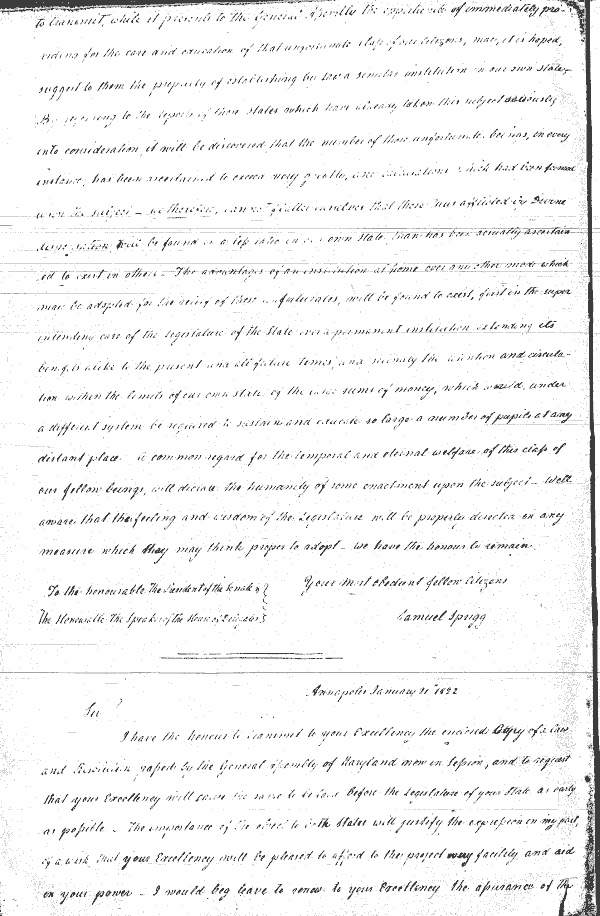 to transmit, while it presents to the General Assembly the opportunity of immediately pro-
viding for the care and education of that unfortunate class of our Citizens, may, it is hoped,
suggest to them the propriety of establishing by law a similar institution in our own State,
By referring to the reports of those States which have already taken this subject seriously
into consideration, it will be discovered that the number of those unfortunate beings, in every
instance, has been ascertained to exceed very greatly, any calculations which had been formed
upon the subject – we therefore, cannot flatter ourselves that those thus afflicted by Divine
dispensation will be found in a less ratio in our own State, than has been actually ascertain
ed to exist in others – The advantages of an institution at home over any other mode which
may be adopted for the relief of these unfortunates, will be found to exist, first in the super
intending care of the legislature of the State over a permanent institution extending its
benefits alike to the present and all future times, and secondly the retention and circula-
tion within the limits of our own State of the large sums of money, which would, under
a different system be required to sustain and educate so large a number of pupils at any
distant place – a common regard for the temporal and eternal welfare of this class of
our fellow beings, will dictate the humanity of some enactment upon the subject – Well
aware that the feeling and wisdom of the Legislature will be properly directed in any
measure which they may think proper to adopt – we have the honour to remain.
Your most obedient fellow Citizens
To the honourable The President of the Senate &
The Honourable The Speaker of the House of Delegates
Samuel Sprigg
Annapolis January 1822
Sir
I have the honour to transmit to your Excellency the enclosed Copy of a Law
and Resolution passed by the General Assembly of Maryland now in Session, and to request
that your Excellency will cause the same to be laid before the Legislature of your State as early
as possible – The importance of the object to both States will justify the expression on my part,
of a wish that your Excellency will be pleased to afford to the project every facility and aid
in your power – I would beg leave to renew to your Excellency the assurance of the